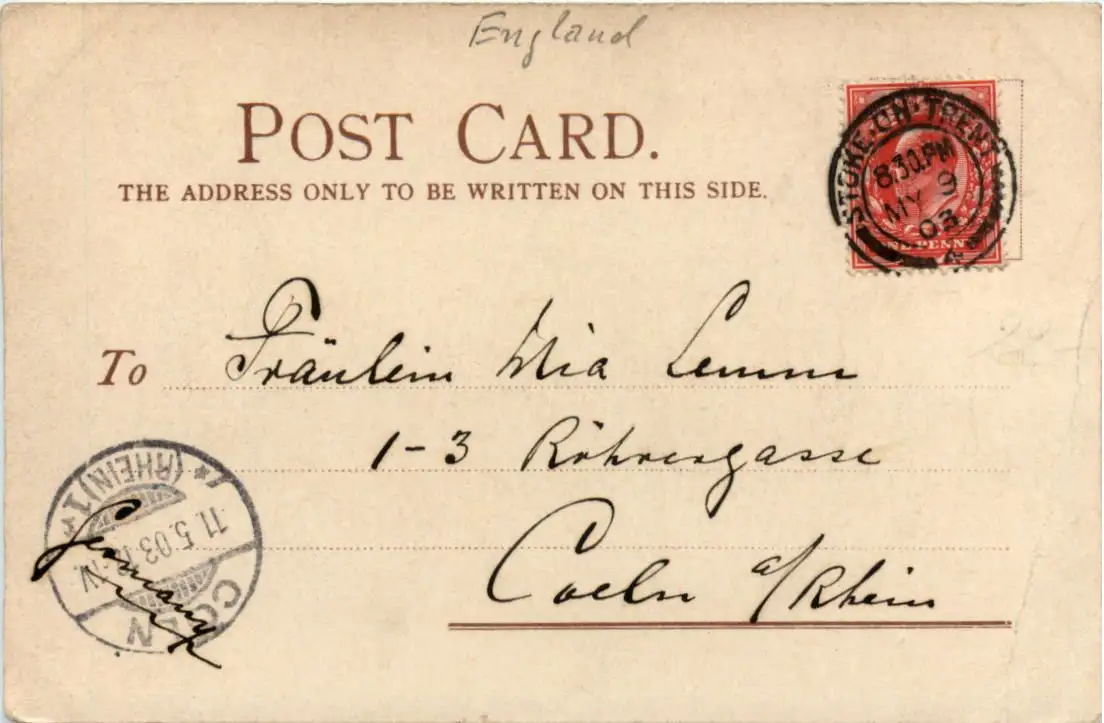 England
POST CARD.
THE ADDRESS ONLY TO BE WRITTEN ON THIS SIDE.
STOKE·ON·TRENT
8.30.PM
MY 9
03
ONE PENNY
To Fräulein Mia Lemm
1-3 Röhrergasse
Coeln a/Rhein
Germany
CÖLN (RHEIN) 1
11.5.03